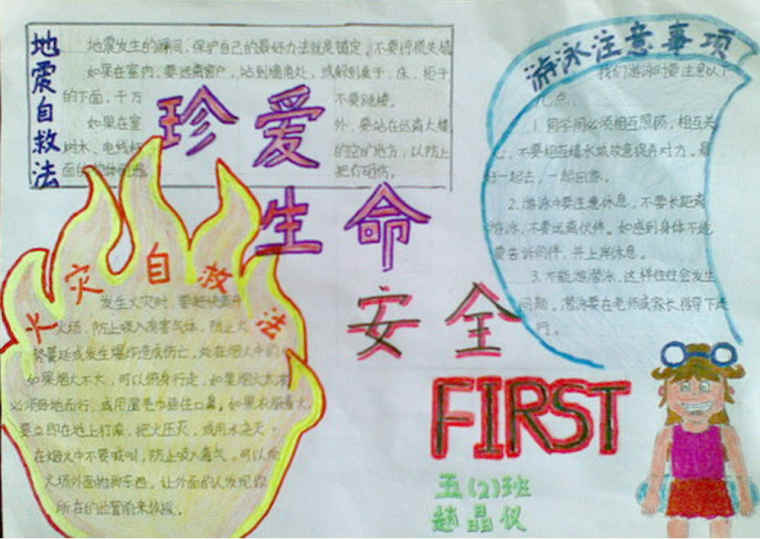 地震自救法
地震发生的瞬间,保护自己的最好办法就是镇定,不要惊慌失措
如果在室内,要远离窗户,站到墙角处,或躲到桌子、床、柜子
的下面,千万不要跳楼。
如果在室外,要站在远离大楼
树木、电线杆的空旷地方,以防止
把你砸伤。
珍爱
生命
安全
FIRST
游泳注意事项
我们游泳时要注意以下
几点:
1.同学间必须相互照顾,相互关
心,不要相互嬉水或故意捉弄对方,最
好一起去,一起回家。
2.游泳中要注意休息,不要长距离
游泳,不要远离伙伴。如感到身体不适
要告诉同伴,并上岸休息。
3.不能游潜泳,这样往往会发生
问题。潜泳要在老师或家长指导下进
行。
火灾自救法
发生火灾时,要赶快离开
火场,防止吸入有害气体,防止火
势蔓延或发生爆炸造成伤亡,处在烟火中的
如果烟火不大,可以俯身行走,如果烟火太浓
必须匍地而行,或用湿毛巾捂住口鼻。如果衣服着火,
要立即在地上打滚,把火压灭,或用水浇灭。
在烟火中不要喊叫,防止吸入毒气。可以向
火场外面扔东西,让外面的人发现你
所在的位置前来救援。
五(2)班
赵晶仪